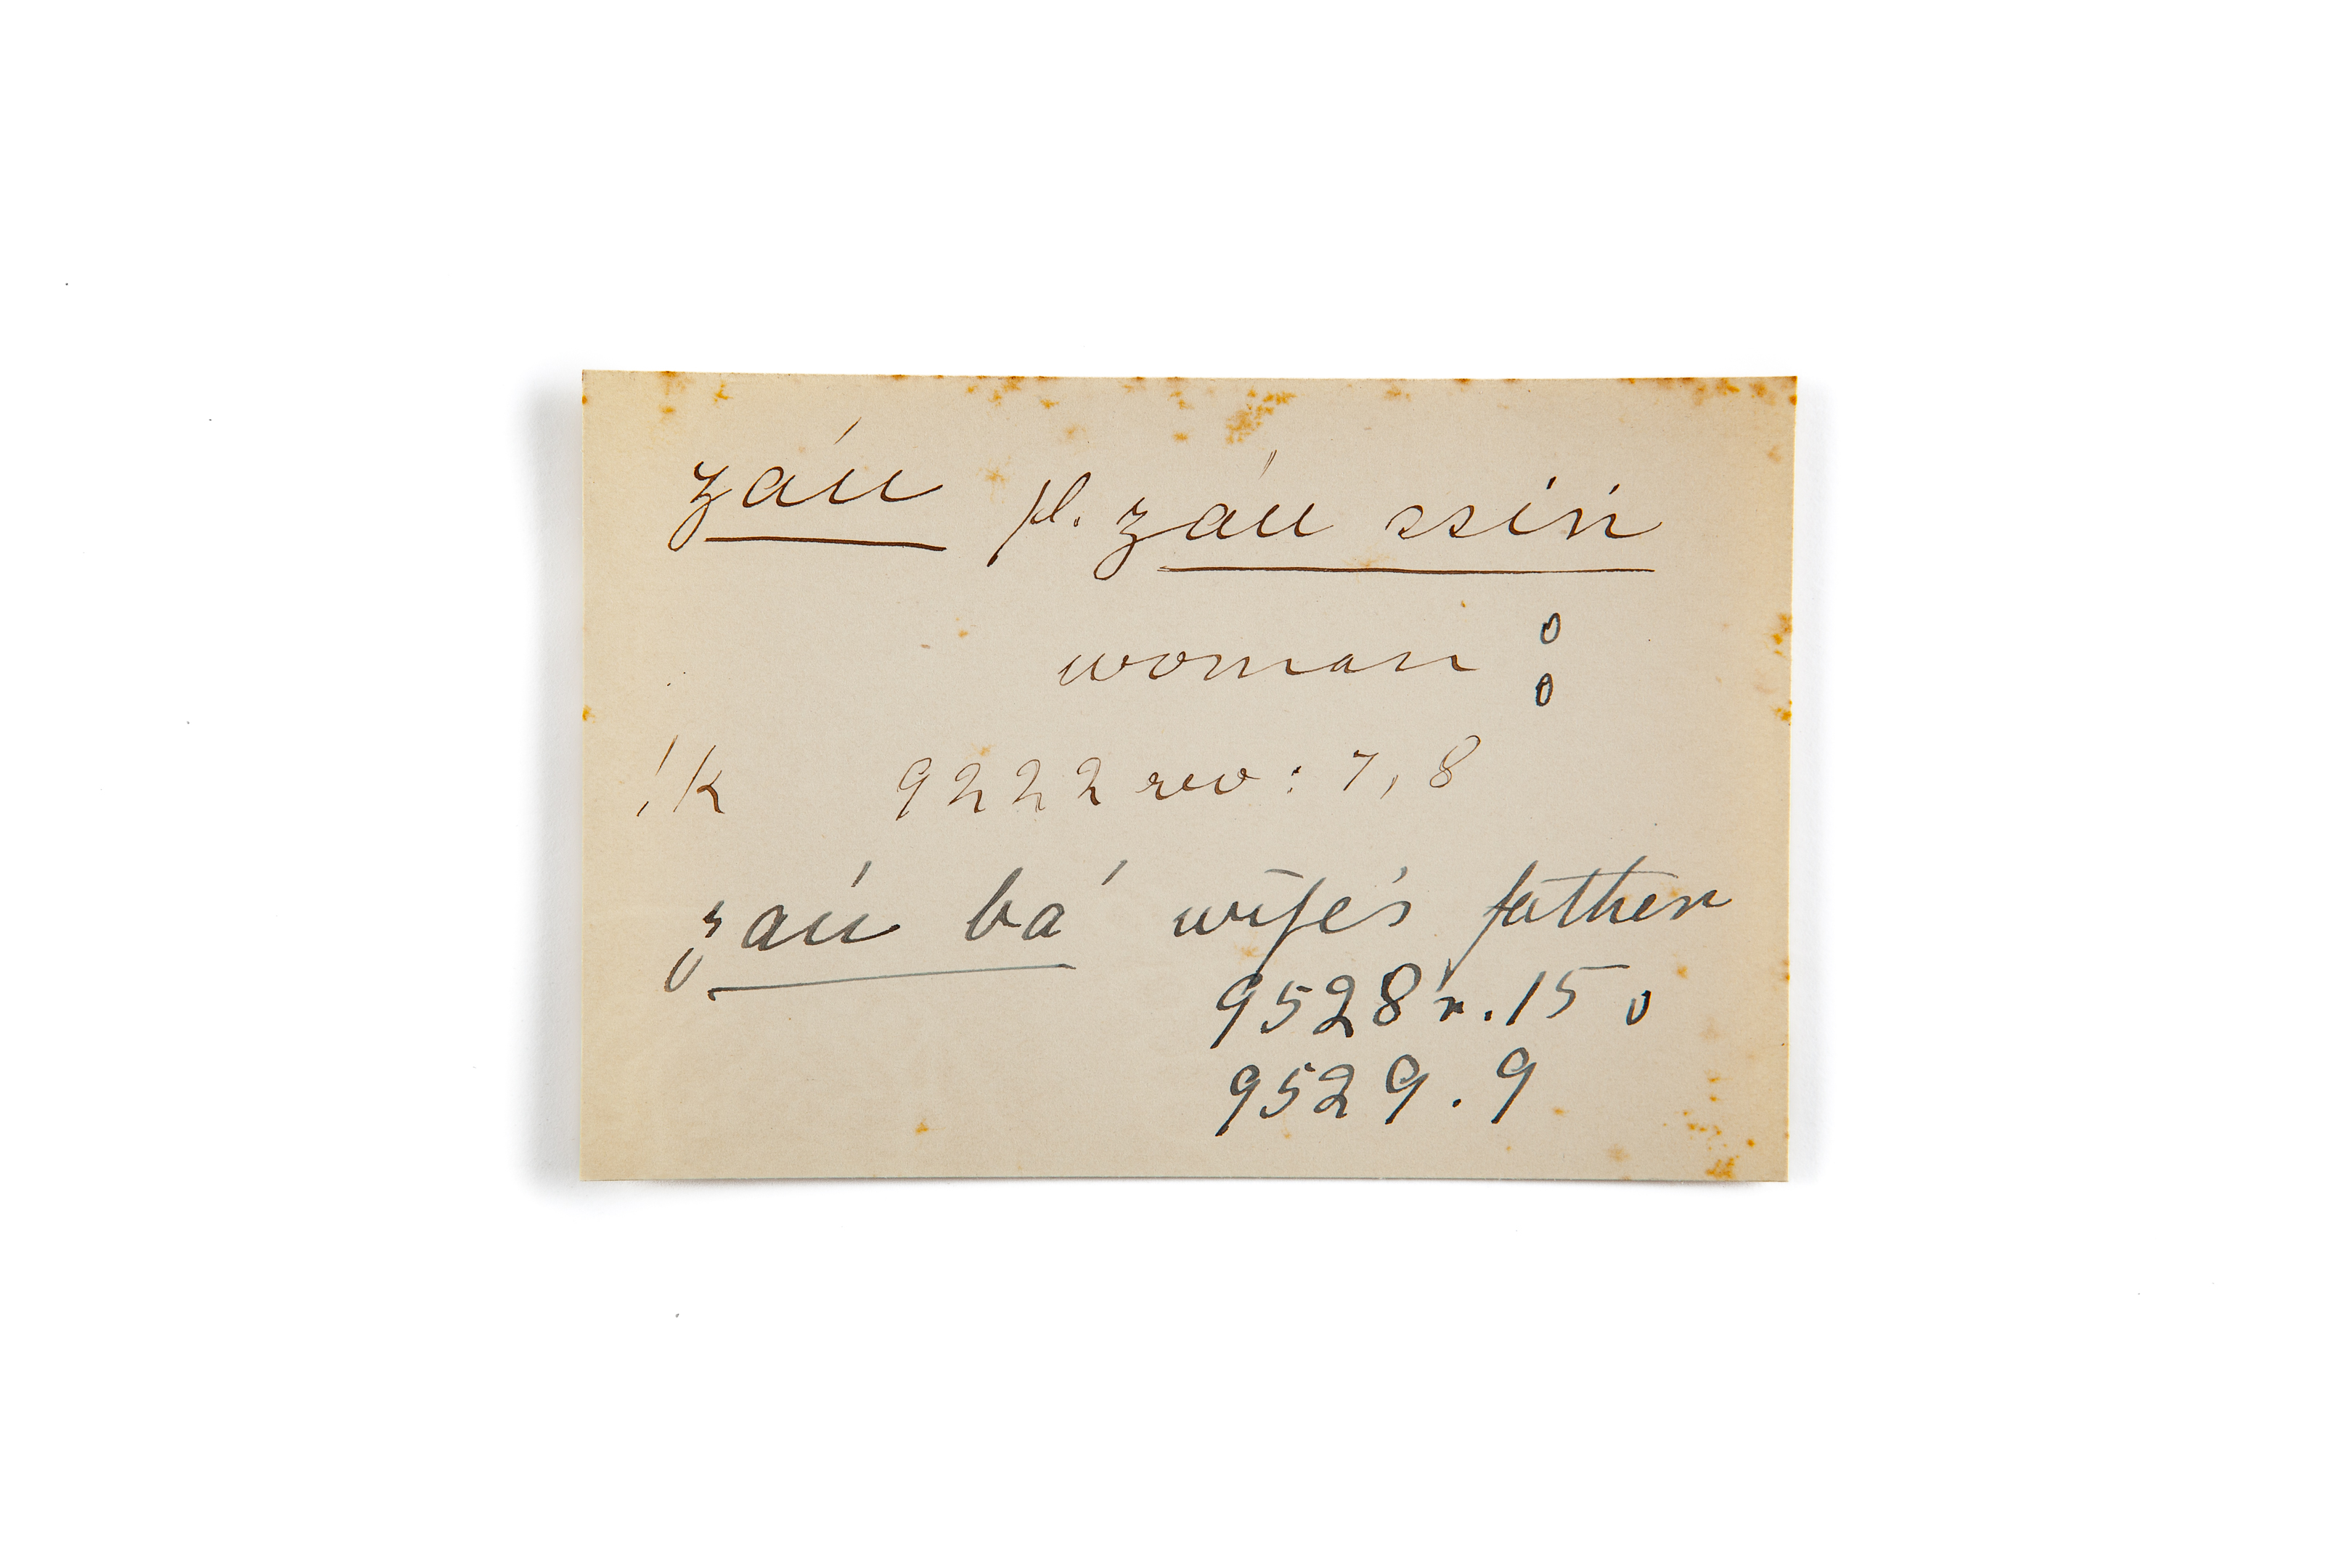 záu pl. záu ssin
woman :
!k 9222 rev : 7, 8
záu bá wife's father
9528 r. 15
9529. 9